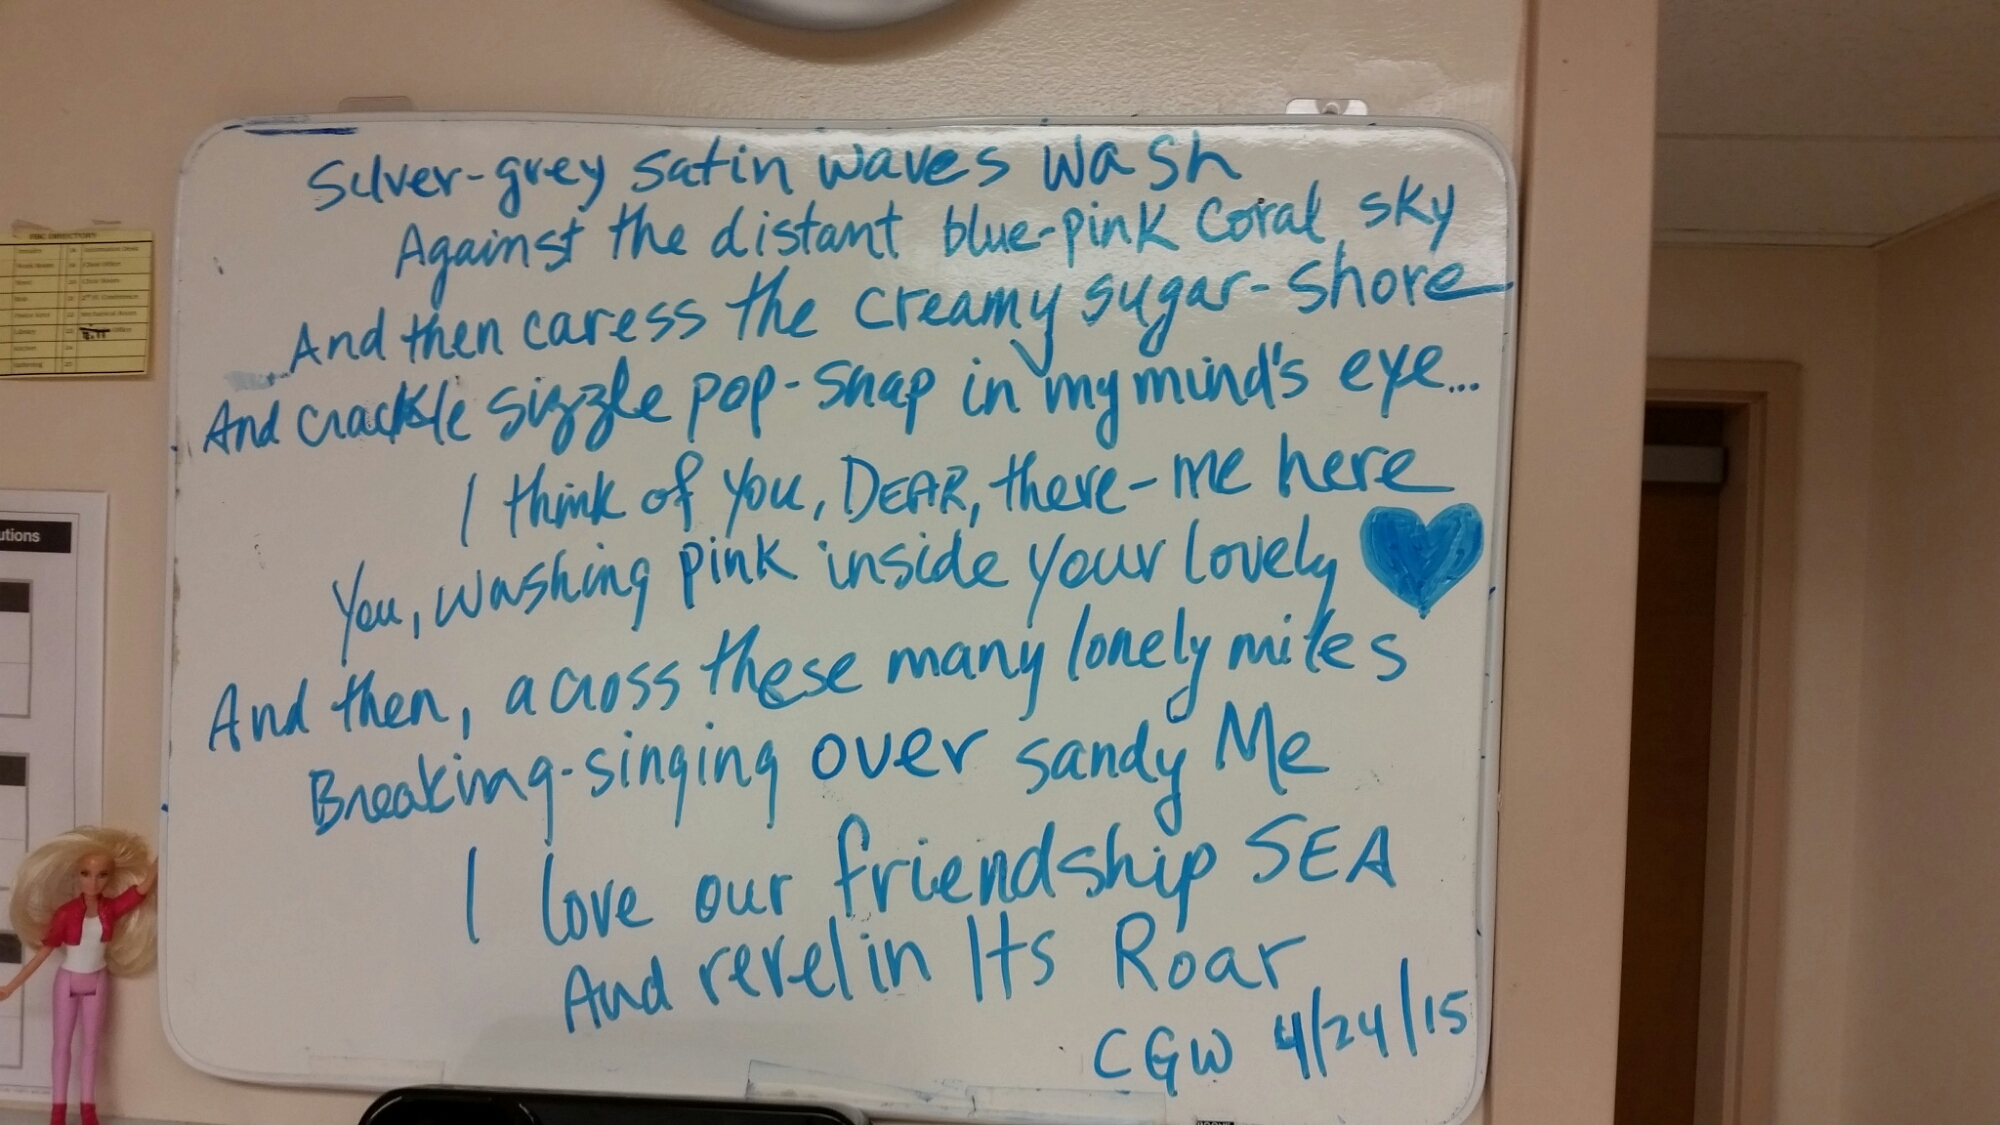 Silver-grey satin waves wash
Against the distant blue-pink coral sky
And then caress the creamy sugar-shore
And crackle sizzle pop-snap in my mind's eye...
I think of you, DEAR, there-me here
You, washing pink inside your lovely
And then, across these many lonely miles
Breaking-singing over sandy Me
I love our friendship SEA
And revel in Its Roar
CGW 4/24/15
DIRECTORY
utions